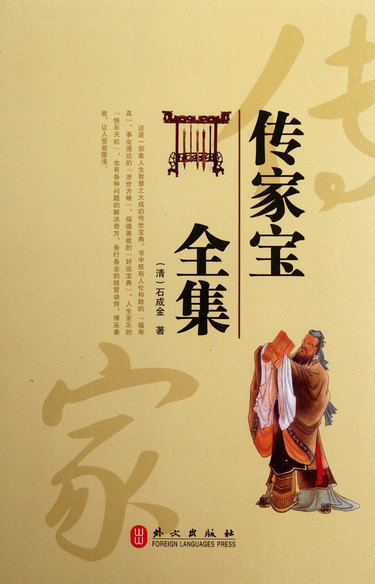 传
家
传家宝
全集
(清)石成金 著
这是一部集人生智慧之大成的传世宝典。书中既有人伦和睦的「福寿
真」、事业通达的「涉世方略」、福德兼收的「好运宝典」、人生至乐的
「快乐天机」,也有各种问题的解决奇方、各行各业的经营诀窍。博采兼
收,让人受益匪浅。
外文出版社
FOREIGN LANGUAGES PRESS